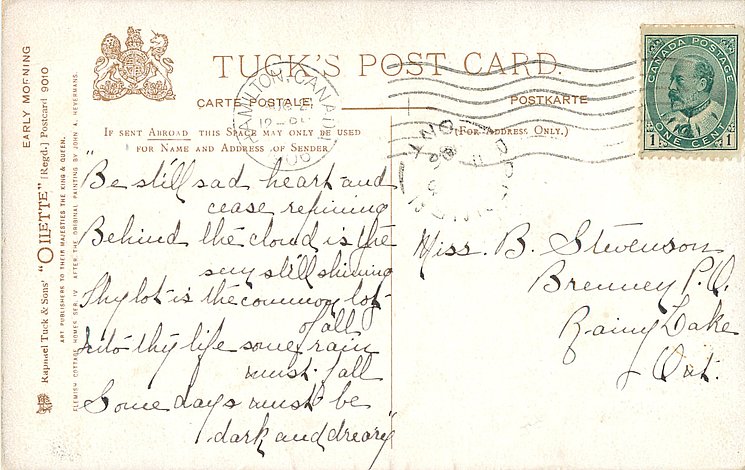 TUCK'S POST CARD.
CARTE POSTALE,
POSTKARTE
IF SENT ABROAD THIS SPACE MAY ONLY BE USED
FOR NAME AND ADDRESS OF SENDER
(FOR ADDRESS ONLY.)
HAMILTON, CANADA
06
ONT
CANADA POSTAGE
1 ONE CENT 1
"Be still sad heart and
cease repining
Behind the cloud is the
suny still shining
Thy lot is the common lot
of all
Into thy life some rain
must fall
Some days must be
dark and dreary"
Miss. B. Stevenson
Brenney P.O.
Rainy Lake
Ont.
EARLY MORNING
Raphael Tuck & Sons' "OILETTE" [Regd.] Postcard 9010
ART PUBLISHERS TO THEIR MAJESTIES THE KING & QUEEN.
FLEMISH COTTAGE HOMES SER. IV. AFTER THE ORIGINAL PAINTING BY JOHN A. HEYERMANS.